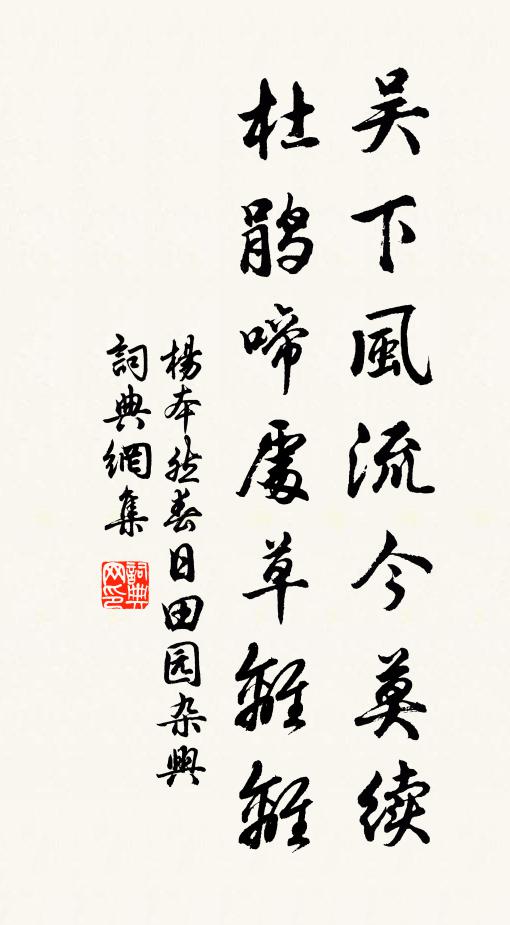 吴下風流今莫续
杜鹃啼處草離離
楊本然春日田园杂興
詞典網集
詞典网印